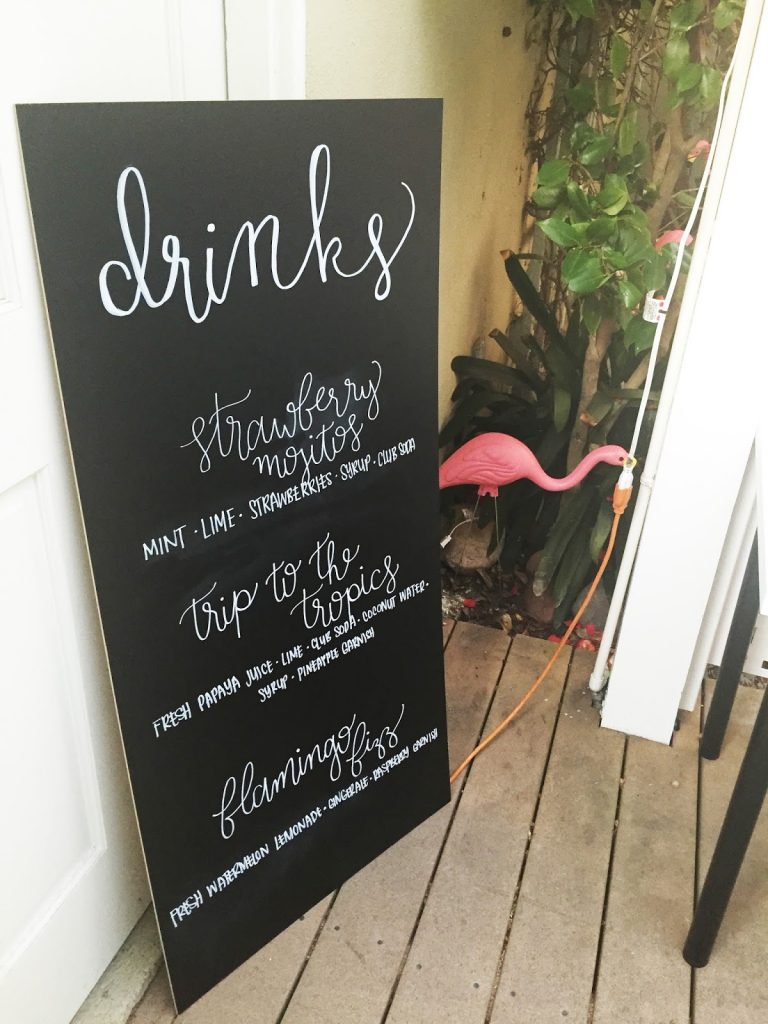 drinks
strawberry
mojitos
MINT · LIME · STRAWBERRIES · SYRUP · CLUB SODA
trip to the
tropics
FRESH PAPAYA JUICE · LIME · CLUB SODA · COCONUT WATER ·
SYRUP · PINEAPPLE GARNISH
flamingo
fizz
FRESH WATERMELON LEMONADE · GINGERALE · RASPBERRY GARNISH